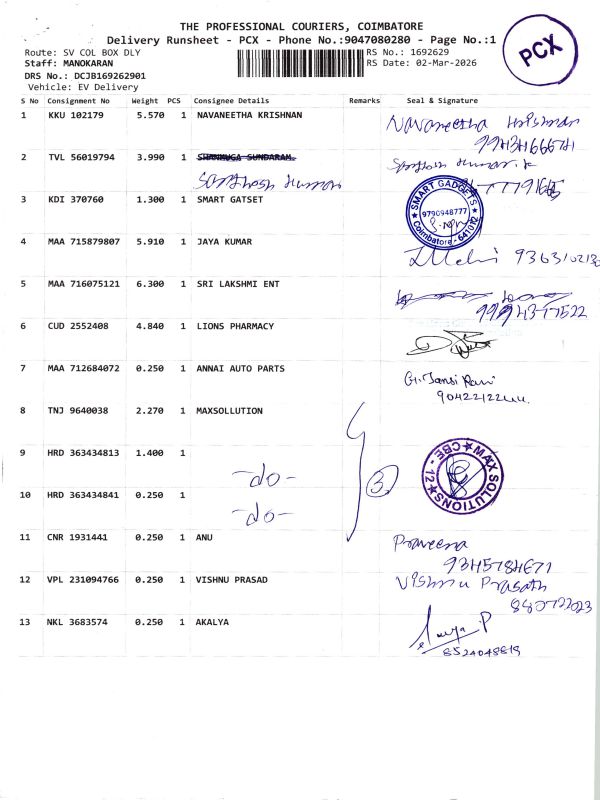 THE PROFESSIONAL COURIERS, COIMBATORE
Delivery Runsheet - PCX - Phone No.:9047080280 - Page No.:1
PCX
Route: SV COL BOX DLY RS No.: 1692629
Staff: MANOKARAN RS Date: 02-Mar-2026
DRS No.: DCJB169262901
Vehicle: EV Delivery
S No Consignment No Weight PCS Consignee Details Remarks Seal & Signature
1 KKU 102179 5.570 1 NAVANEETHA KRISHNAN Navaneetha Krishnan
2 TVL 56019794 3.990 1 SHANMUGA SUNDARAM Santhosh Kumar.K
Santhosh Kumar
3 KDI 370760 1.300 1 SMART GATSET
SMART GADGETS
9790948777
Coimbatore - 641012
4 MAA 715879807 5.910 1 JAYA KUMAR
5 MAA 716075121 6.300 1 SRI LAKSHMI ENT
6 CUD 2552408 4.840 1 LIONS PHARMACY
7 MAA 712684072 0.250 1 ANNAI AUTO PARTS G. Jansi Rani
8 TNJ 9640038 2.270 1 MAXSOLLUTION
9 HRD 363434813 1.400 1
-do-
3.
MAX SOLUTIONS
CBE - 12
10 HRD 363434841 0.250 1
-do-
11 CNR 1931441 0.250 1 ANU Praveena
12 VPL 231094766 0.250 1 VISHNU PRASAD Vishnu Prasath
13 NKL 3683574 0.250 1 AKALYA
8524048819